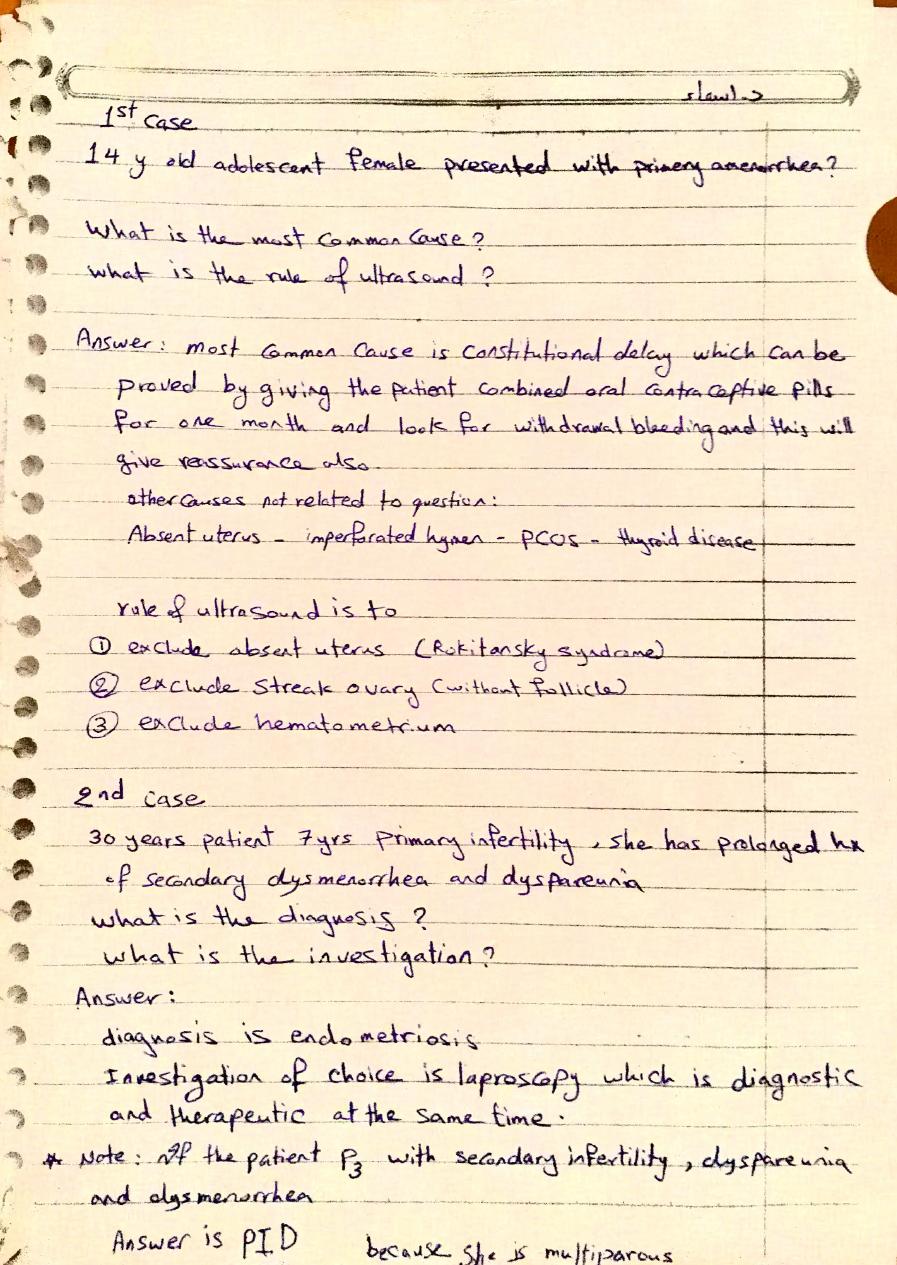 د. اسماء
1st case
14 y old adolescent female presented with primery amenorrhea?
What is the most Common Cause?
what is the rule of ultrasound?
Answer: most Common Cause is Constitutional delay which can be
proved by giving the patient combined oral contraceptive pills
for one month and look for withdrawal bleeding and this will
give reassurance also.
other causes not related to question:
Absent uterus - imperforated hymen - PCOS - thyroid disease
rule of ultrasound is to
① exclude absent uterus (Rokitansky syndrome)
② exclude Streak ovary (without follicle)
③ exclude hematometrium
2nd case
30 years patient 7yrs primary infertility, she has prolonged hx
of secondary dysmenorrhea and dyspareunia
what is the diagnosis?
what is the investigation?
Answer:
diagnosis is endometriosis
Investigation of choice is laproscopy which is diagnostic
and therapeutic at the same time.
* Note: If the patient P3 with secondary infertility, dyspareunia
and dysmenorrhea
Answer is PID because she is multiparous